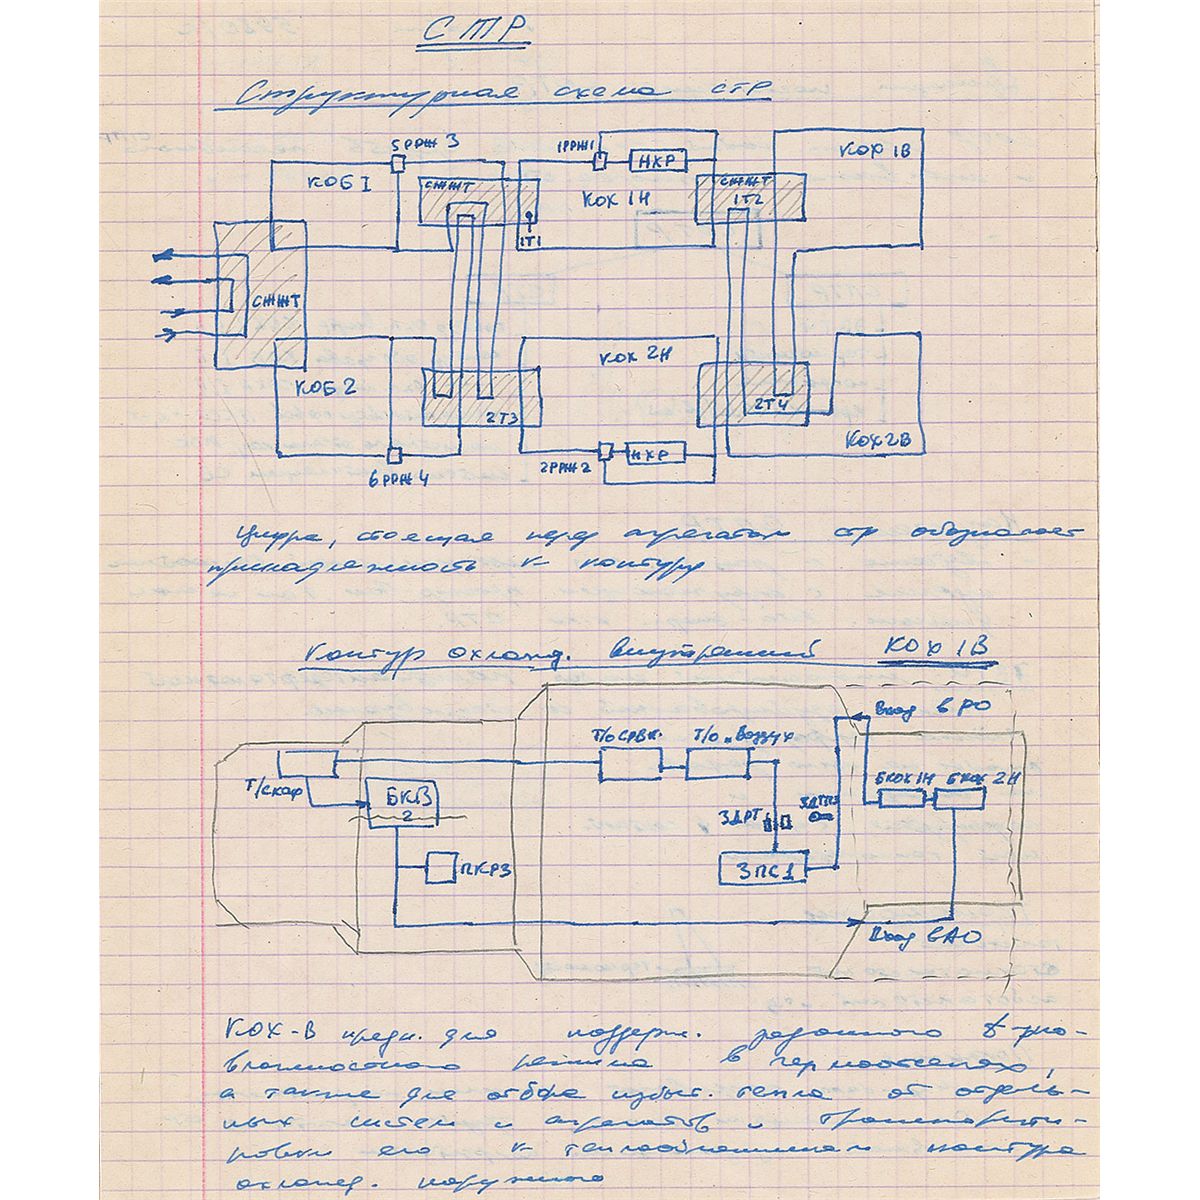 СТР
Структурная схема СТР
5РРЖ3
КОБ1
СЖЖТ
1Т1
1РРЖ1
НХР
КОХ 1Н
СЖЖТ
1Т2
КОХ 1В
СЖЖТ
КОБ2
6РРЖ4
2Т3
КОХ 2Н
2РРЖ2
НХР
2Т4
КОХ2В
Цифра, стоящая перед агрегатом СТР обозначает
принадлежность к контуру
Контур охлажд. внутренний КОХ 1В
Т/скаф
БКВ
2
ПКРЗ
Т/О СРВК.
Т/О "Воздух
3ДРТ
3ПС1
Вход в РО
БКОХ1Н БКОХ 2Н
Вход в АО
КОХ-В предн. для поддерж. заданного t-рно-
влажностного режима в гермоотсеках,
а также для отбора избыт. тепла от отдель-
ных систем и агрегатов и транспорти-
ровки его к теплообменникам контура
охлажд. наружного